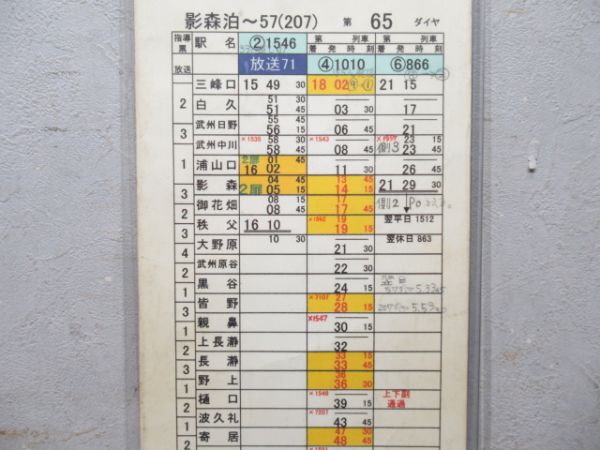 影森泊～57(207) 第 65 ダイヤ
指導票 駅名 ②1546 第 列車 第 列車
着発時刻 着発時刻
放送 放送71 ④1010 ⑥866
三峰口 15 49 30 18 02 21 15
2
白久 51 30 51 45 03 30 17
武州日野 55 45 56 15 06 45 21
3
武州中川 ×1535 58 30 58 45 ×1543 08 45 23 15 23 45 側3
1
浦山口 2扉 01 45 16 02 11 30 26 45
影森 2扉 04 45 05 15 13 45 14 15 21 29 30
3
御花畑 08 15 08 45 17 17 45 側2
翌平日 1512
秩父 16 10 10 30 19 19 15
翌休日 863
3
大野原 21 30
2
武州原谷 22 30
黒谷 24 15 翌日
3
皆野 ×7107 27 28 15
親鼻 ×1547 30 15
上長瀞 32
2
長瀞 33 15 33 45
野上 36 36 30
樋口 ×1549 39 15 上下副通過
波久礼 43 45
寄居 47 30 48 45